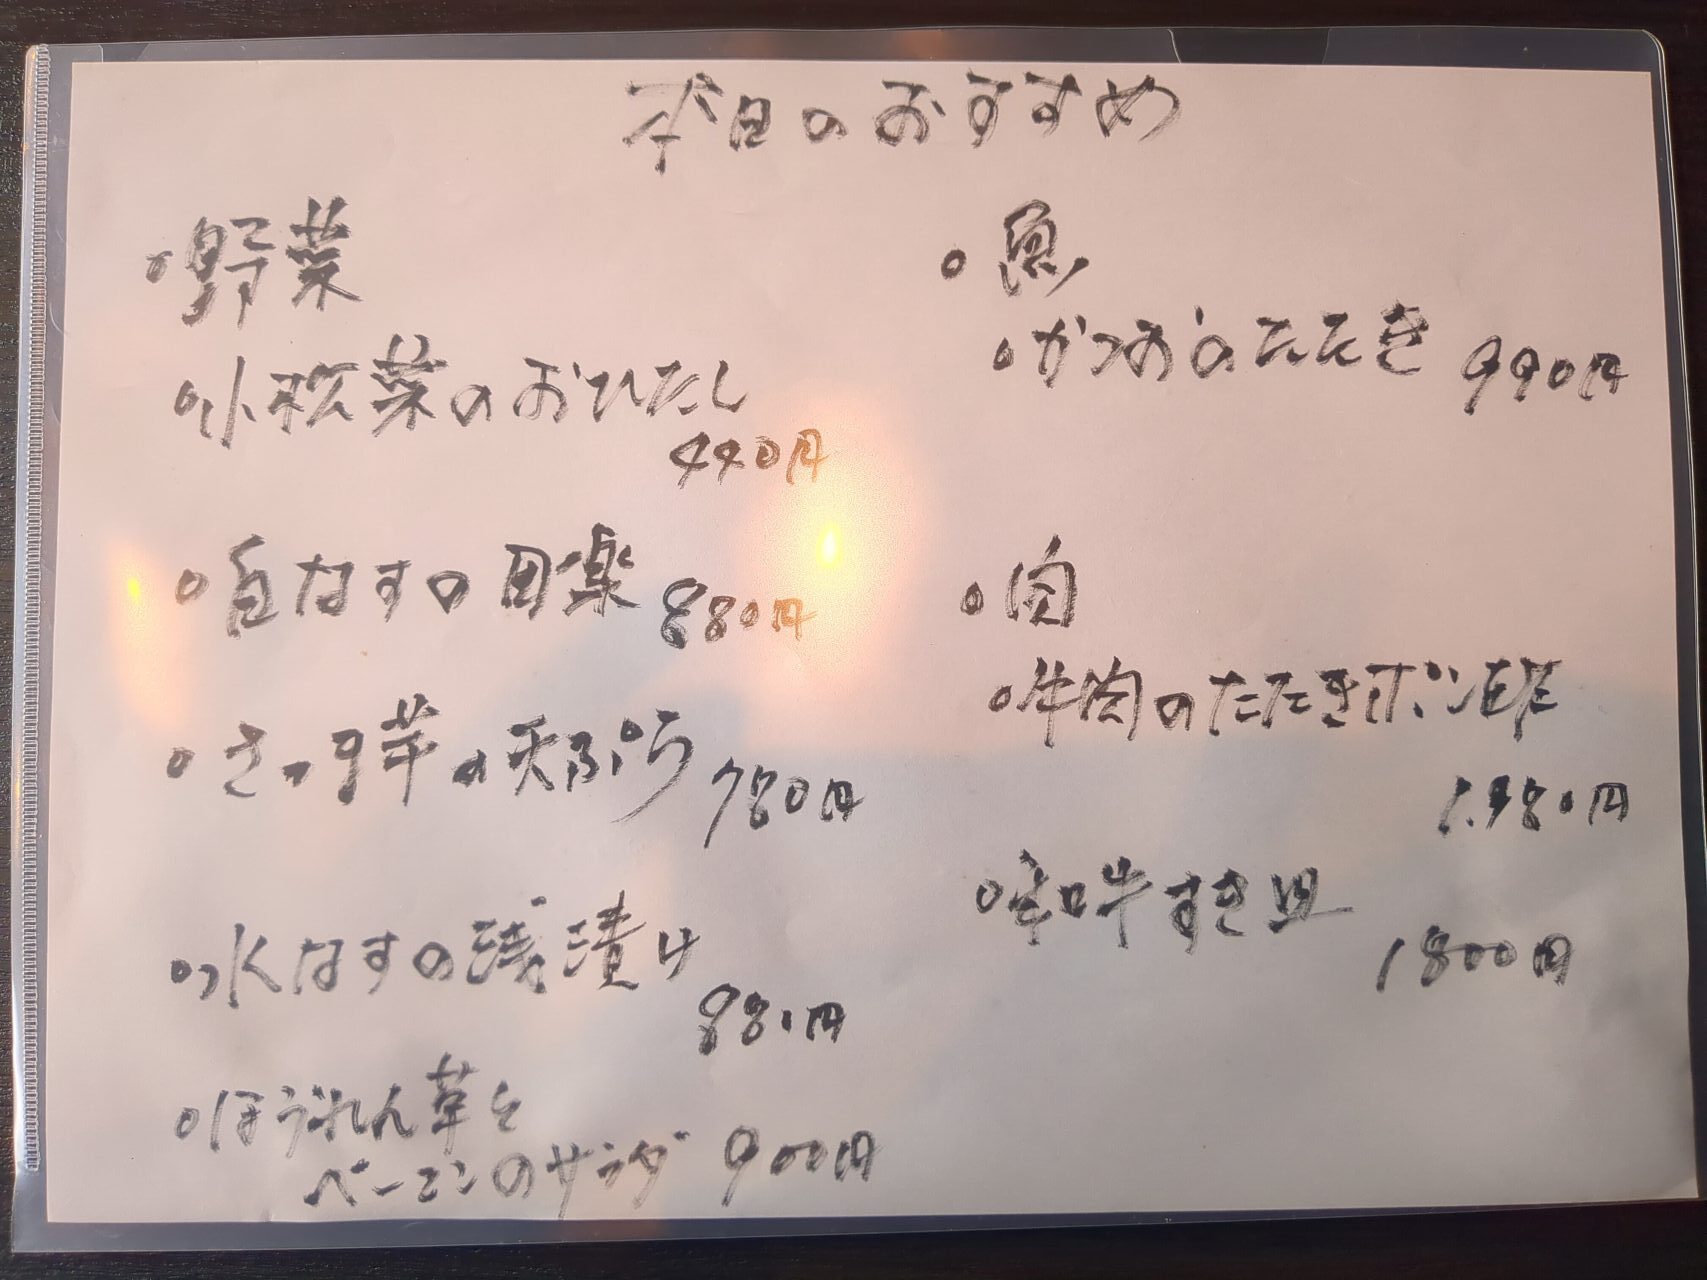 本日のおすすめ
野菜
小松菜のおひたし
440円
白なすの田楽 880円
さつま芋の天ぷら 780円
水なすの浅漬け
880円
ほうれん草と
ベーコンのサラダ 900円
魚
かつおのたたき 990円
肉
牛肉のたたきポン酢
1.380円
牛すき皿
1800円